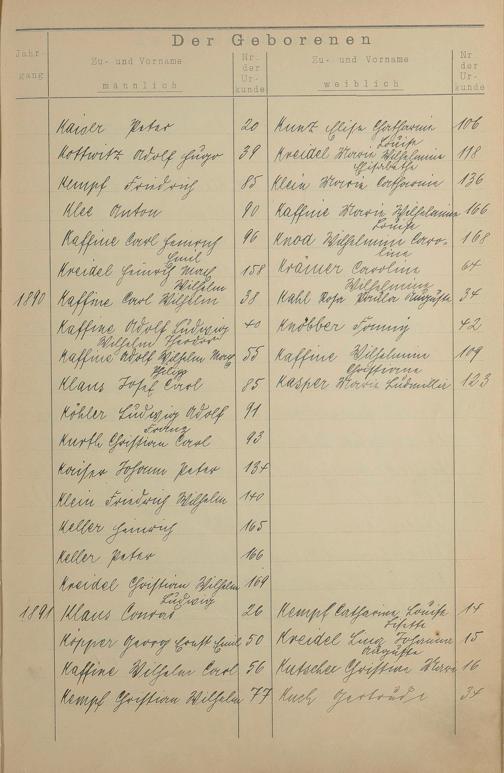 Der Geborenen
Jahr-
gang
Zu- und Vorname
männlich
Nr.
der
Ur-
kunde
Zu- und Vorname
weiblich
Nr.
der
Ur-
kunde
Kaiser Peter 20 Kunz Elise Catharine 106
Louise
Kottwitz Adolf Hugo 39 Kreidel Marie Wilhelmine 118
Elisabethe
Kempf Friedrich 85 Klein Marie Catharine 136
Klee Anton 90 Kaffine Marie Wilhelmine 166
Louise
Kaffine Carl Heinrich 96 Knod Wilhelmine Caro- 168
Emil line
Kreidel Heinrich Max 158 Krämer Caroline 64
Wilhelm Wilhelmine
1890 Kaffine Carl Wilhelm 38 Kahl Rosa Paula Auguste 34
Kaffine Adolf Ludwig 40 Knöbber Fanny 42
Wilhelm Theodor
Kaffine Adolf Wilhelm Max 55 Kaffine Wilhelmine 109
Philipp Christiane
Klaus Josef Carl 85 Kasper Marie Ludmilla 123
Köhler Ludwig Adolf 91
Franz
Kurth Christian Carl 93
Kaiser Johann Peter 134
Klein Friedrich Wilhelm 140
Keller Heinrich 165
Keller Peter 166
Kreidel Christian Wilhelm 169
Ludwig
1891 Klaus Conrad 26 Kempf Catharine Louise 14
Lisette
Kopper Georg Ernst Emil 50 Kreidel Lina Johanna 15
Auguste
Kaffine Wilhelm Carl 56 Kutscher Christine Marie 16
Kempf Christian Wilhelm 77 Koch Gertrude 34